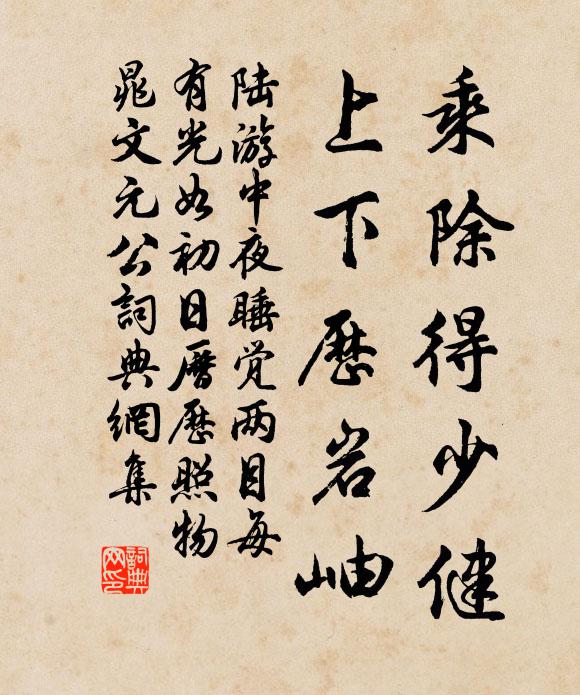 乘除得少健
上下历岩岫
陆游中夜睡觉两目每
有光如初日历历照物
晁文元公詞典網集
詞典网印